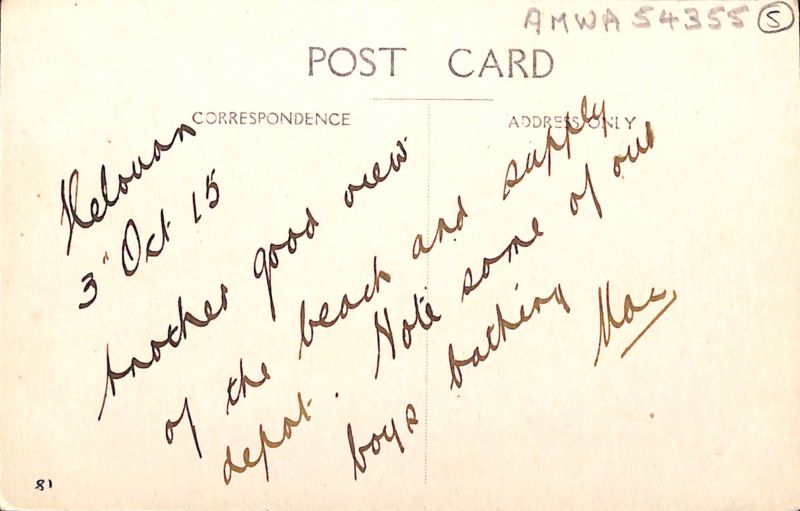 AMWA 54355 S
POST CARD
CORRESPONDENCE
ADDRESS ONLY
Helouan
3" Oct 15
Another good view
of the beach and supply
depot. Note some of our
boys bathing
Mac
81